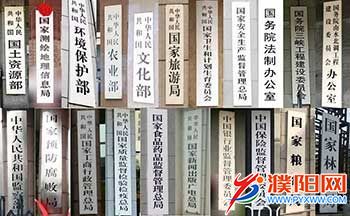 中华人民共和国
国土资源部
国家测绘地理信息局
中华人民共和国
环境保护部
中华人民共和国
农业部
中华人民共和国
文化部
中华人民共和国
国家旅游局
中华人民共和国
国家卫生和计划生育委员会
国家安全生产监督管理总局
国务院法制办公室
国务院三峡工程建设委员会
国务院南水北调工程
建设委员会办公室
中华人民共和国监
国家预防腐败局
中华人民共和国
国家工商行政管理总局
中华人民共和国
国家质量监督检验检疫总局
国家食品药品监督管理总局
中华人民共和国
国家新闻出版广电总局
中国银行业监督管理委员会
中国保险监督管理
国家粮
国家林
濮阳网
WWW.PYXWW.COM